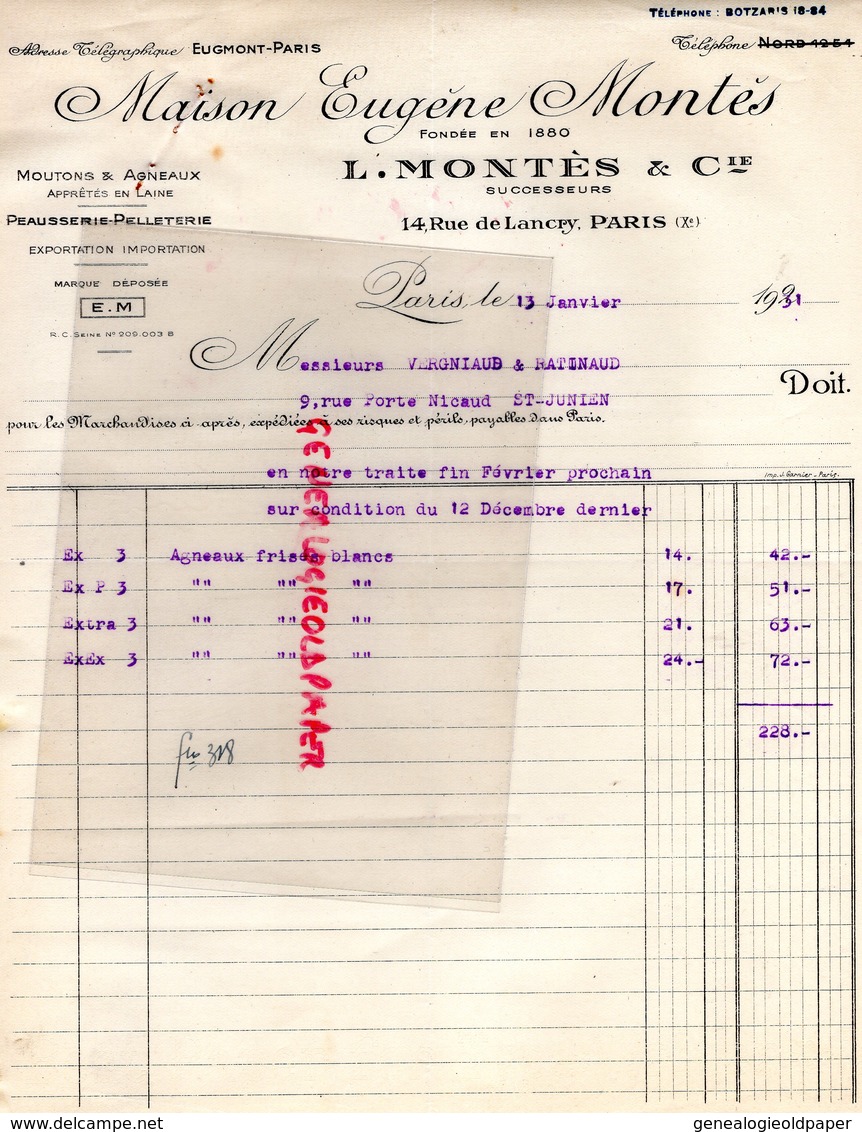 TÉLÉPHONE : BOTZARIS 18-84
Adresse Télégraphique EUGMONT-PARIS
Téléphone NORD 42 51
Maison Eugène Montès
FONDÉE EN 1880
L. MONTÈS & CIE
SUCCESSEURS
14, Rue de Lancry, PARIS (Xe)
MOUTONS & AGNEAUX
APPRÊTÉS EN LAINE
PEAUSSERIE-PELLETERIE
EXPORTATION IMPORTATION
MARQUE DÉPOSÉE
E.M
R.C. SEINE No 209.003 B
Paris, le 13 Janvier 1931
Messieurs VERGNIAUD & RATINAUD
Doit.
9,rue Porte Nicaud ST-JUNIEN
pour les Marchandises ci après, expédiées à ses risques et périls, payables dans Paris.
en notre traite fin Février prochain
Imp. J. Garnier - Paris.
sur condition du 12 Décembre dernier
Ex 3 Agneaux frisés blancs 14. 42.-
Ex P 3 "" "" "" 17. 51.-
Extra 3 "" "" "" 21. 63.-
ExEx 3 "" "" "" 24.- 72.-
228.-
318
GENEALOGIEOLDPAPER
genealogieoldpaper